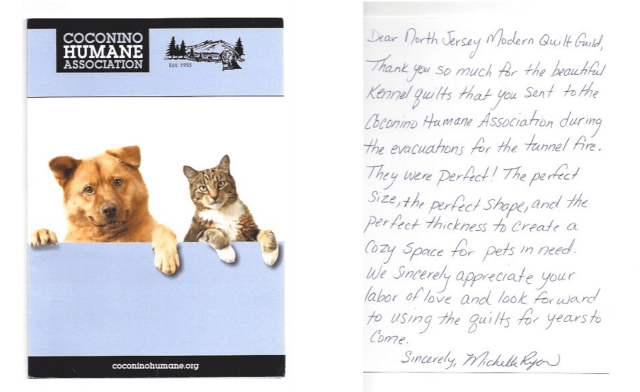 COCONINO
HUMANE
ASSOCIATION
EST. 1955
coconinohumane.org
Dear North Jersey Modern Quilt Guild,
Thank you so much for the beautiful
Kennel quilts that you sent to the
Coconino Humane Association during
the evacuations for the tunnel fire.
They were perfect! The perfect
size, the perfect shape, and the
perfect thickness to create a
cozy space for pets in need.
We sincerely appreciate your
labor of love and look forward
to using the quilts for years to
come.
Sincerely, Michelle Ryan